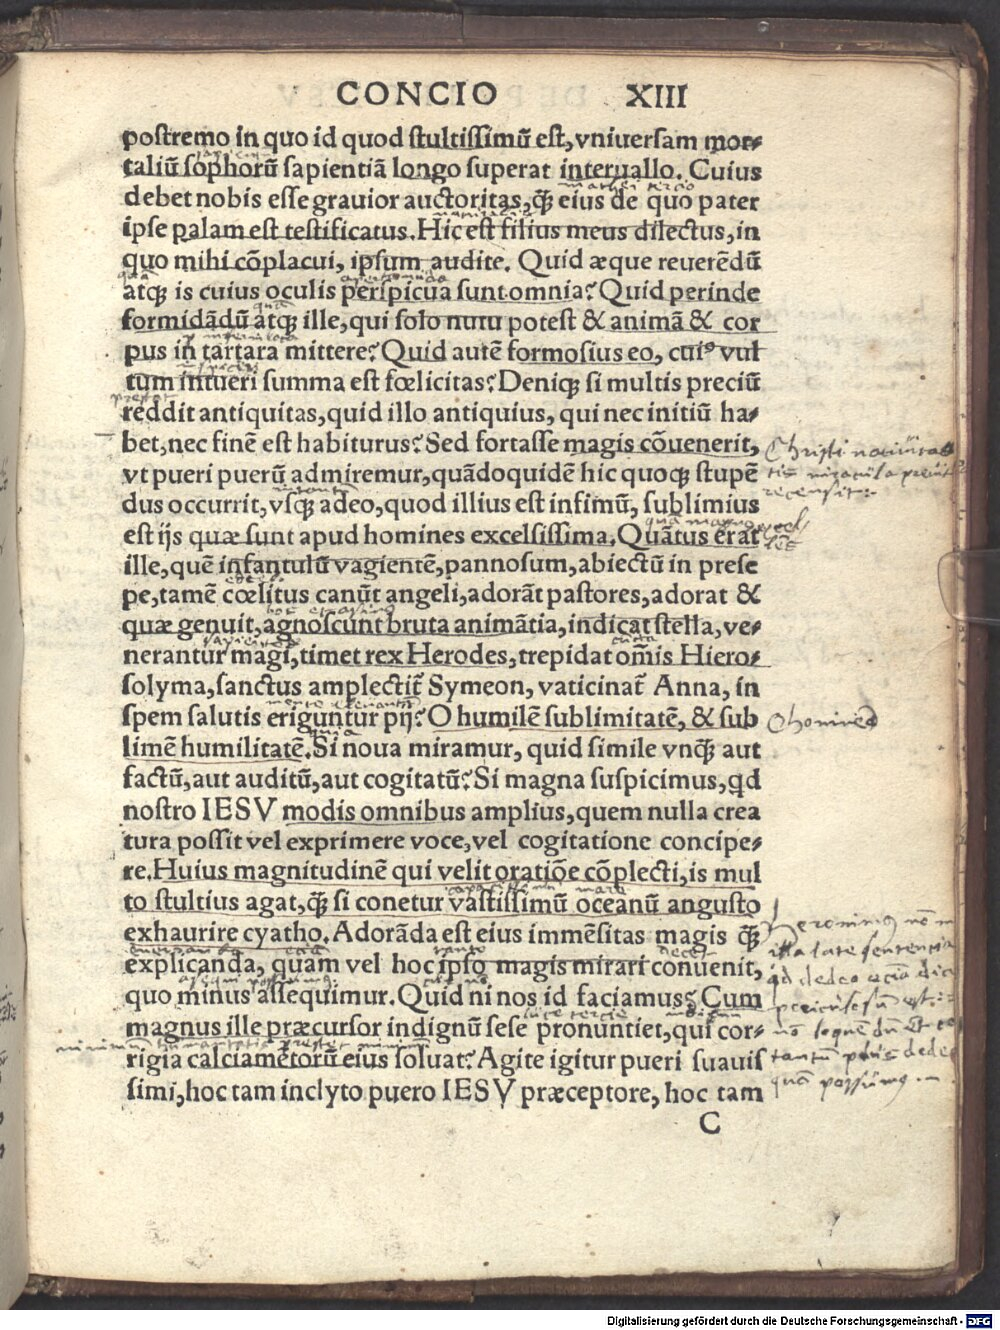 CONCIO XIII
postremo in quo id quod stultissimũ est, vniuersam mor⸗
taliũ sophorũ sapientiã longo superat interuallo. Cuius
debet nobis esse grauior auctoritas, q̃ꝫ eius de quo pater
ipse palam est testificatus. Hic est filius meus dilectus, in
quo mihi cõplacui, ipsum audite. Quid æque reuerẽdũ
atqꝫ is cuius oculis perspicua sunt omnia? Quid perinde
formidãdũ atqꝫ ille, qui solo nutu potest & animã & cor
pus in tartara mittere? Quid autẽ formosius eo, cuiꝰ vul
tum intueri summa est fœlicitas? Deniqꝫ si multis preciũ
reddit antiquitas, quid illo antiquius, qui nec initiũ ha⸗
bet, nec finẽ est habiturus? Sed fortasse magis cõuenerit,
Christi
vt pueri puerũ admiremur, quãdoquidẽ hic quoqꝫ stupẽ
dus occurrit, vsqꝫ adeo, quod illius est infimũ, sublimius
est ijs quæ sunt apud homines excelsissima. Quãtus erat
ille, quẽ infantulũ vagientẽ, pannosum, abiectũ in prese
pe, tamẽ cœlitus canũt angeli, adorãt pastores, adorat &
quæ genuit, agnoscunt bruta animãtia, indicat stella, ve⸗
nerantur magi, timet rex Herodes, trepidat om̃is Hiero⸗
solyma, sanctus amplectit̃ Symeon, vaticinat̃ Anna, in
spem salutis eriguntur pij? O humilẽ sublimitatẽ, & sub
limẽ humilitatẽ. Si noua miramur, quid simile vnq̃ꝫ aut
factũ, aut auditũ, aut cogitatũ? Si magna suspicimus, qd
nostro IESV modis omnibus amplius, quem nulla crea
tura possit vel exprimere voce, vel cogitatione concipe⸗
re. Huius magnitudinẽ qui velit oratiõe cõplecti, is mul
to stultius agat, q̃ꝫ si conetur vastissimũ oceanũ angusto
exhaurire cyatho. Adorãda est eius immẽsitas magis q̃ꝫ
explicanda, quam vel hoc ipso magis mirari conuenit,
quo minus assequimur. Quid ni nos id faciamus? Cum
magnus ille præcursor indignũ sese pronuntiet, qui cor⸗
rigia calciamẽtorũ eius soluat? Agite igitur pueri suauis
simi, hoc tam inclyto puero IESV præceptore, hoc tam
C
Digitalisierung gefördert durch die Deutsche Forschungsgemeinschaft - DFG